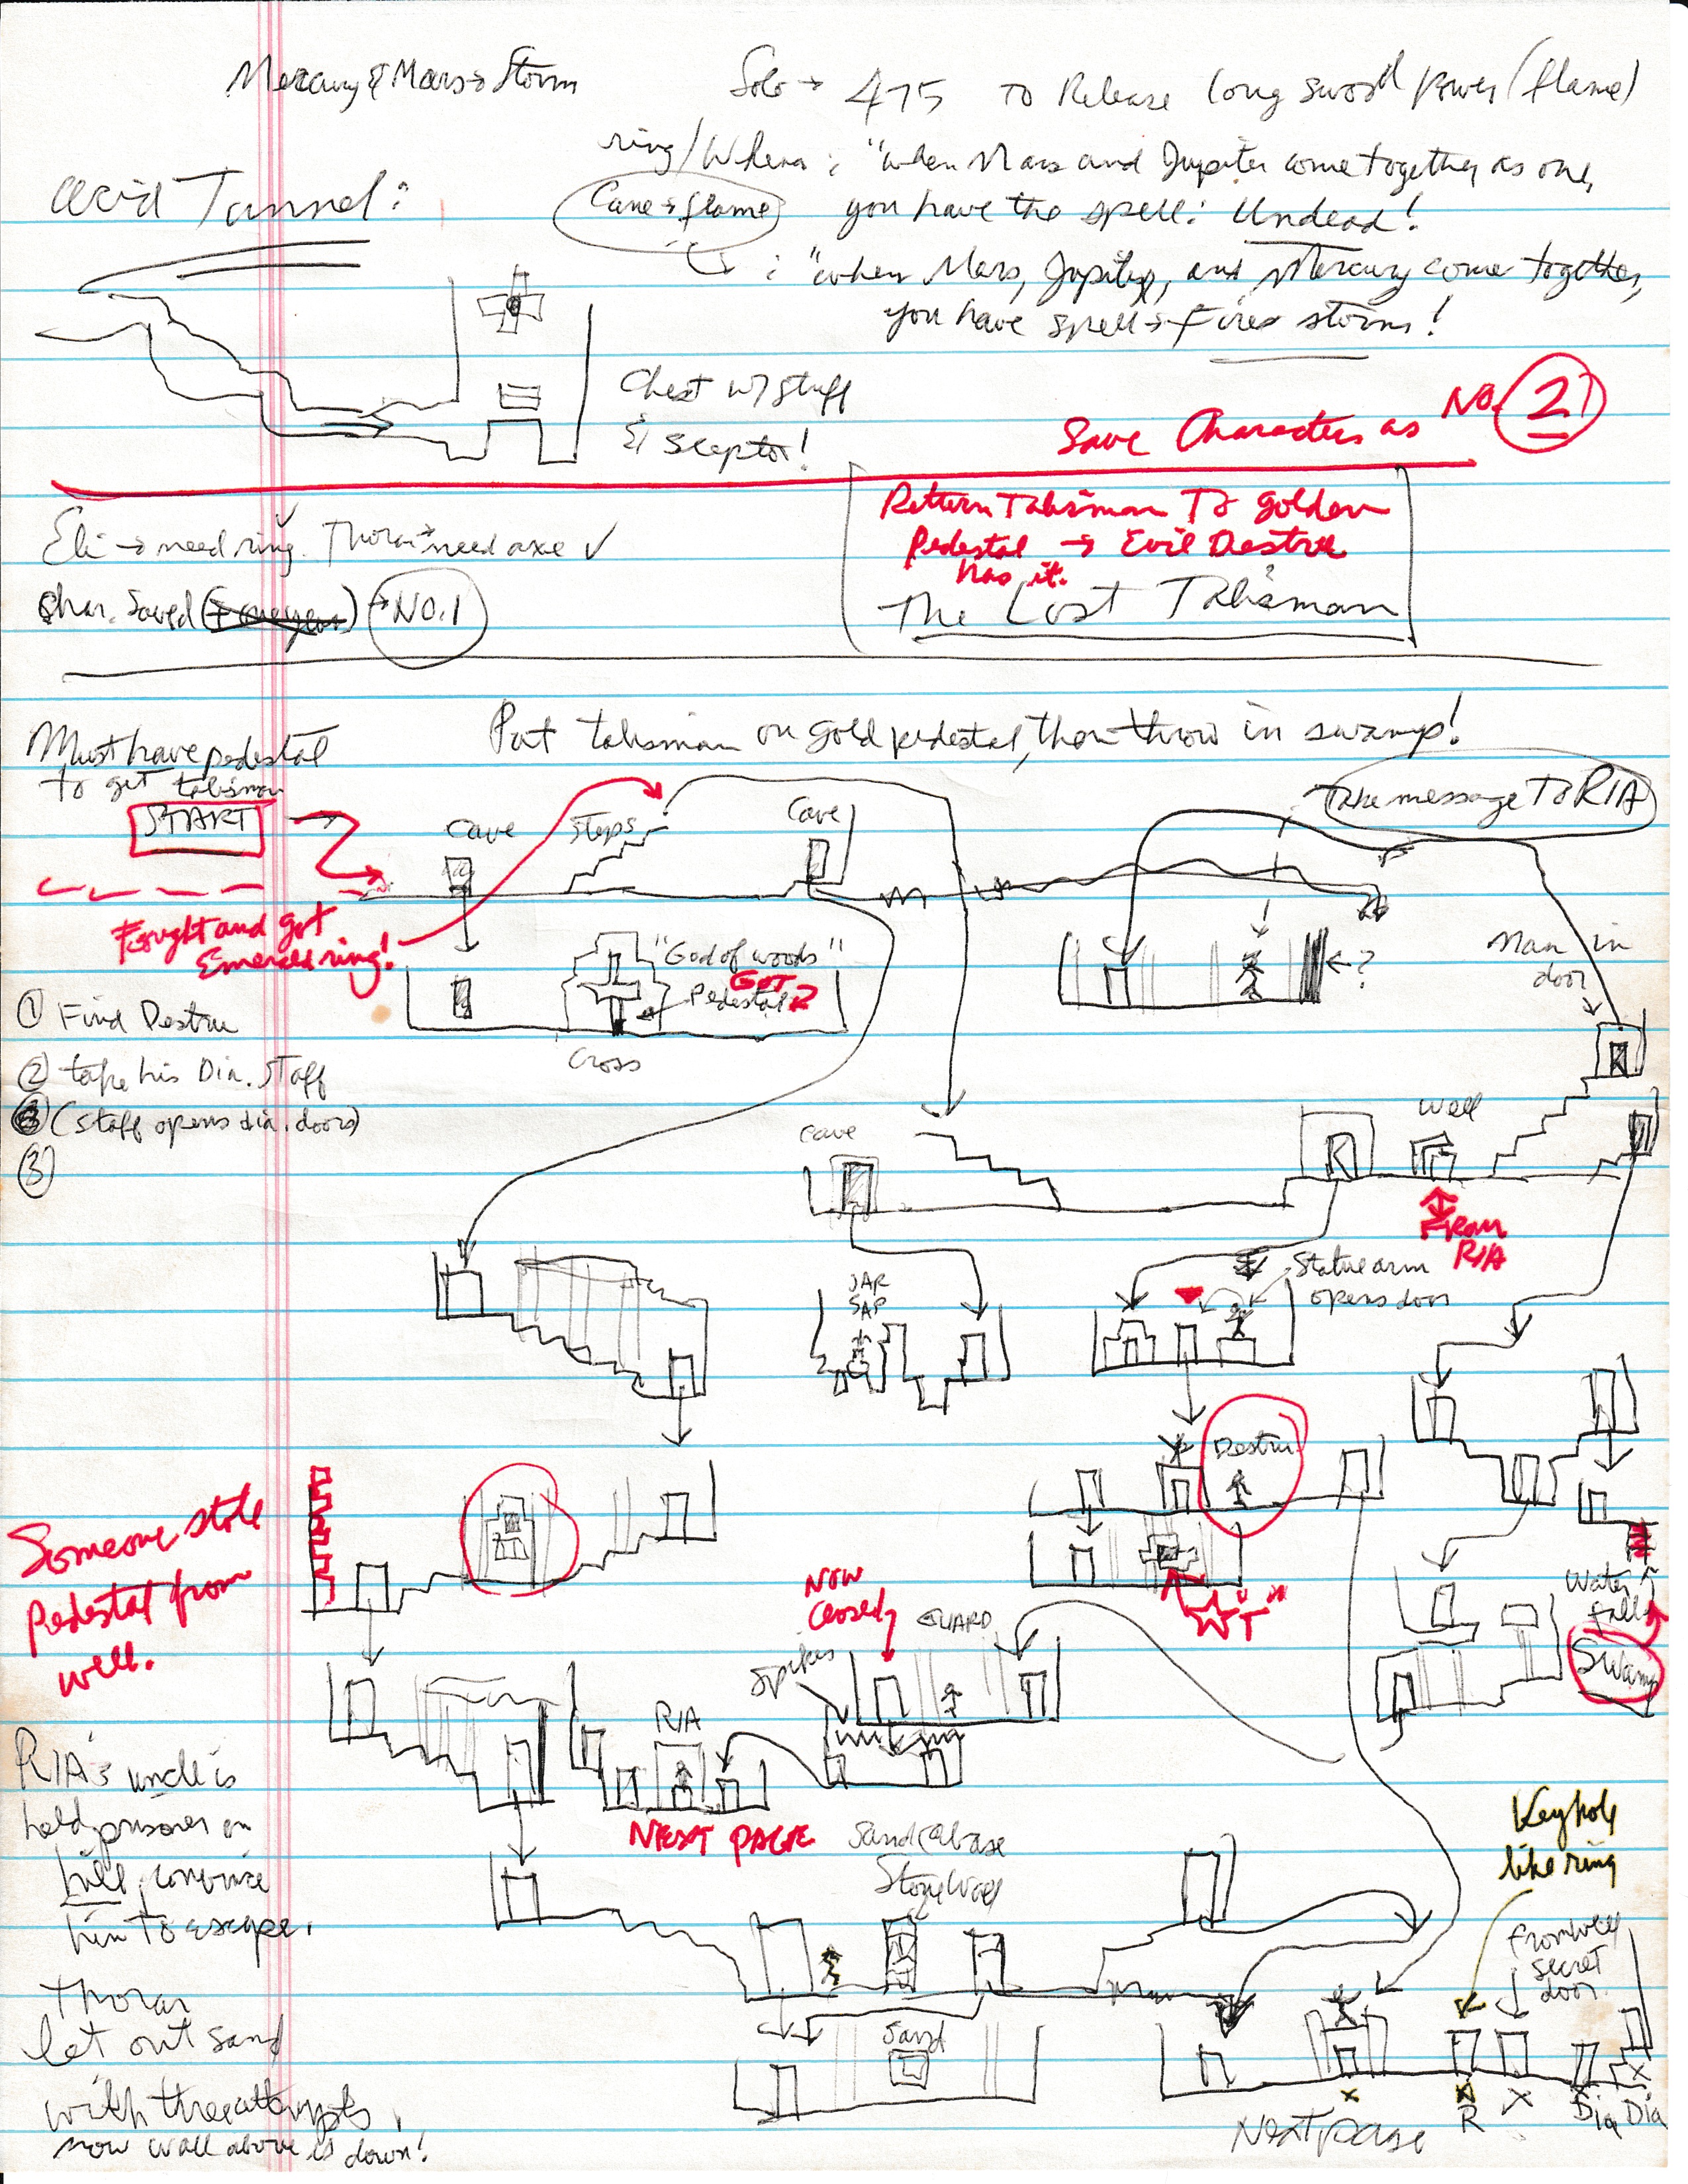 Mercury & Mars → Storm
Solo → 475 To Release long sword power (flame)
ring/Where : "when Mars and Jupiter come together as one,
Cane → flame
you have the spell: Undead!
: "when Mars, Jupiter, and Mercury come together,
you have spell → Fire storm!
Acid Tunnel:
Chest w/ stuff
& Sceptor!
Save Characters as No. 2
Eli → need ring. Thoran need axe ✓
Char. Saved → NO. 1
Return Talisman To golden
Pedestal → Evil Destru
has it.
The Lost Talisman
Must have pedestal
to get talisman
Put talisman on gold pedestal, then throw in swamp!
START
Take message To RIA
Cave
Steps
Cave
Fought and got
Emerald ring!
"God of woods"
GOT
Pedestal 2
Cross
?
Man in
door
① Find Destru
② take his Dia. Staff
(Staff opens dia. doors)
③
Cave
Well
From
RIA
JAR
SAP
Statue arm
opens door
Destru
Someone stole
Pedestal from
well.
Now
Closed
GUARD
Spikes
"T"
Water
fall
Swamp
RIA
NEXT PAGE
RIA's uncle is
held prisoner on
hill, convince
him To escape.
Sand (above
Stone Wall
Keyhole
like ring
From well
secret
door
Thoran
let out sand
with three attempts,
now wall above is down!
Sand
R
Dia
Dia
Next page